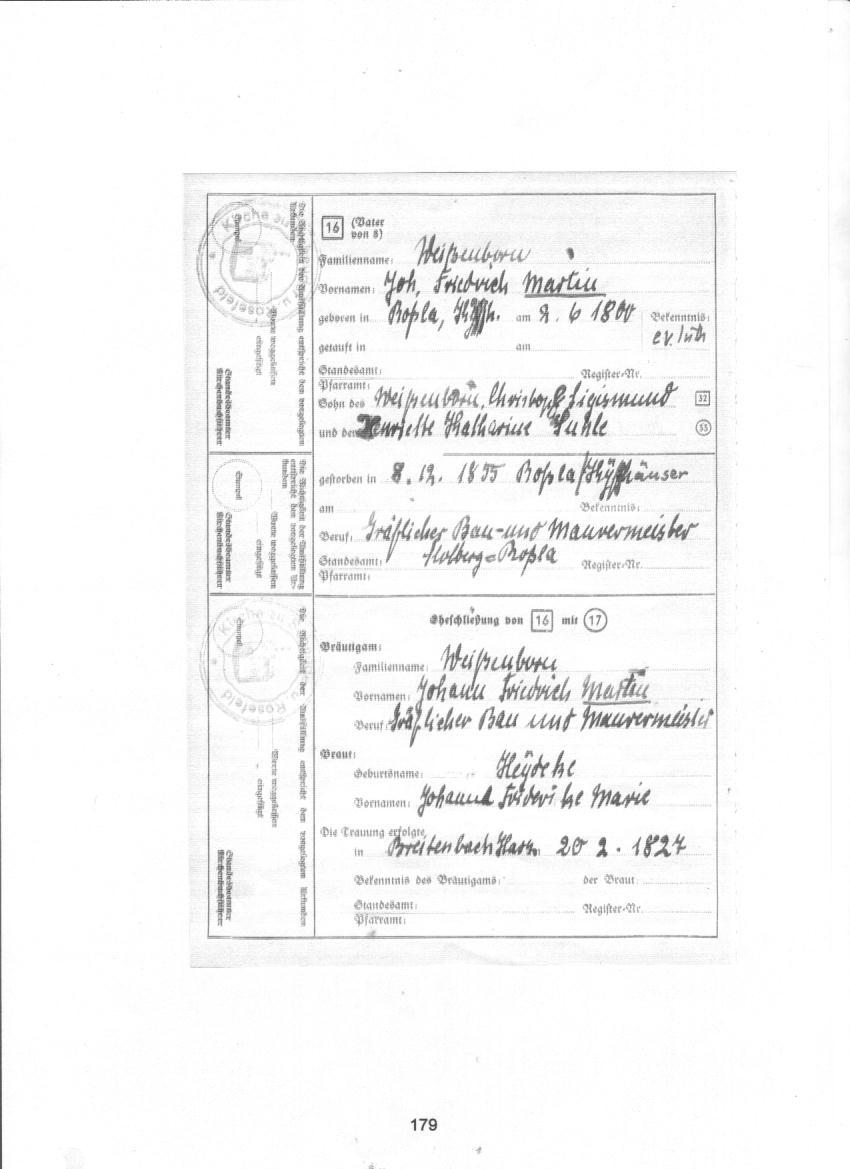 16 (Vater
von 8)
Familienname: Weißenborn
Vornamen: Joh. Friedrich Martin
geboren in Roßla, Kyffh. am 2. 6 1800 Bekenntnis:
getauft in am ev. luth
Standesamt: Register-Nr.
Pfarramt:
Sohn des Weißenborn, Christoph Sigismund 32
und der Henriette Katharine Kuhle 33
gestorben in 8. 12. 1855 Roßla/Kyffhäuser
am Bekenntnis:
Beruf: Gräflicher Bau- und Maurermeister
Standesamt: Stolberg=Roßla Register-Nr.
Pfarramt:
Eheschließung von 16 mit 17
Bräutigam:
Familienname: Weißenborn
Vornamen: Johann Friedrich Martin
Beruf: Gräflicher Bau und Maurermeister
Braut:
Geburtsname: Heydeke
Vornamen: Johanna Friderike Marie
Die Trauung erfolgte
in Breitenbach Harz 20 2. 1827
Bekenntnis des Bräutigams: der Braut:
Standesamt: Register-Nr.
Pfarramt:
Die Richtigkeit der Ausfüllung entspricht den vorgelegten
Urkunden
Stempel
Worte weggelassen
eingefügt
Standesbeamter
Kirchenbuchführer
Kirche zu
u. Rosefeld
Die Richtigkeit der Ausfüllung
entspricht den vorgelegten Ur-
kunden
Stempel
Worte weggelassen
eingefügt
Standesbeamter
Kirchenbuchführer
Die Richtigkeit der Ausfüllung entspricht den vorgelegten Urkunden
Stempel
Worte weggelassen
eingefügt
Standesbeamter
Kirchenbuchführer
Kirche zu
u. Rosefeld
179